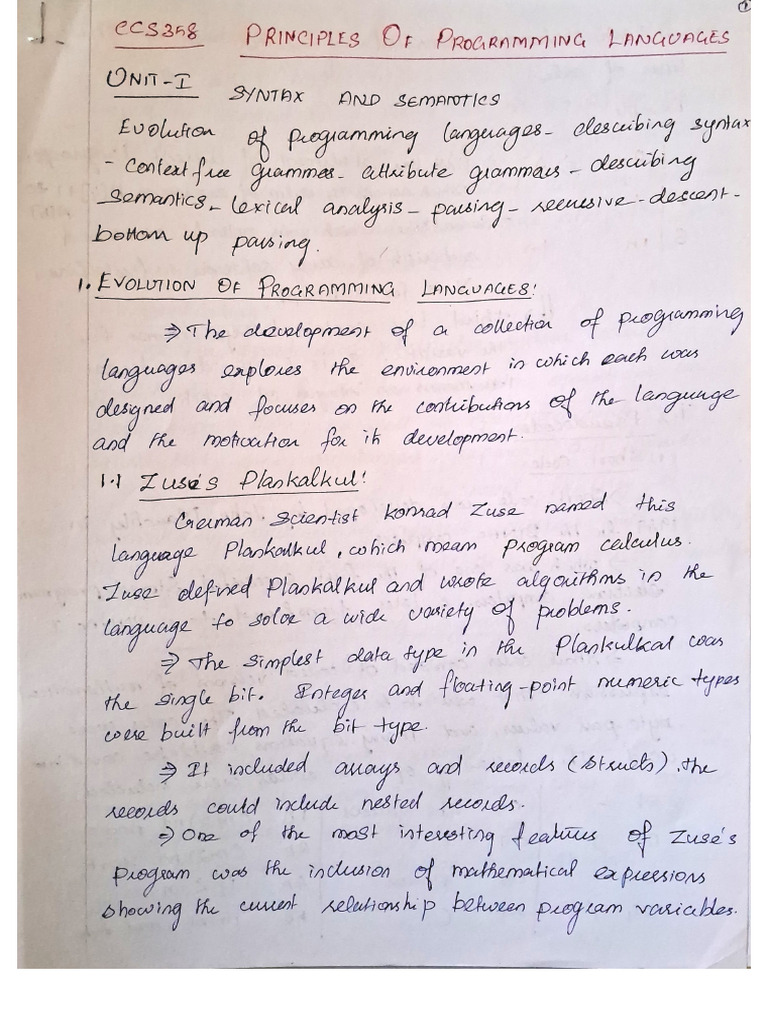 1
CCS358 PRINCIPLES OF PROGRAMMING LANGUAGES
UNIT-I SYNTAX AND SEMANTICS
Evolution of programming languages - describing syntax
- Context free grammars - attribute grammars - describing
semantics - lexical analysis - parsing - recursive - descent -
bottom up parsing.
1. EVOLUTION OF PROGRAMMING LANGUAGES:
⇒ The development of a collection of programming
languages explores the environment in which each was
designed and focuses on the contributions of the language
and the motivation for its development.
1.1 Zuse's Plankalkul:
German Scientist Konrad Zuse named this
language Plankalkul, which mean program calculus.
Zuse defined Plankalkul and wrote algorithms in the
language to solve a wide variety of problems.
⇒ The simplest data type in the Plankulkal was
the single bit. Integer and floating-point numeric types
were built from the bit type.
⇒ It included arrays and records (structs). the
records could include nested records.
⇒ One of the most interesting features of Zuse's
program was the inclusion of mathematical expressions
showing the current relationship between program variables.